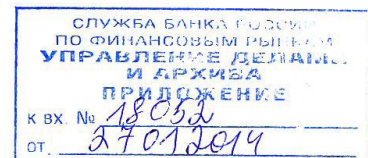 СЛУЖБА БАНКА РОССИИ
ПО ФИНАНСОВЫМ РЫНКАМ
УПРАВЛЕНИЕ ДЕЛАМИ
И АРХИВА
ПРИЛОЖЕНИЕ
К ВХ. № 18052
ОТ 27012014